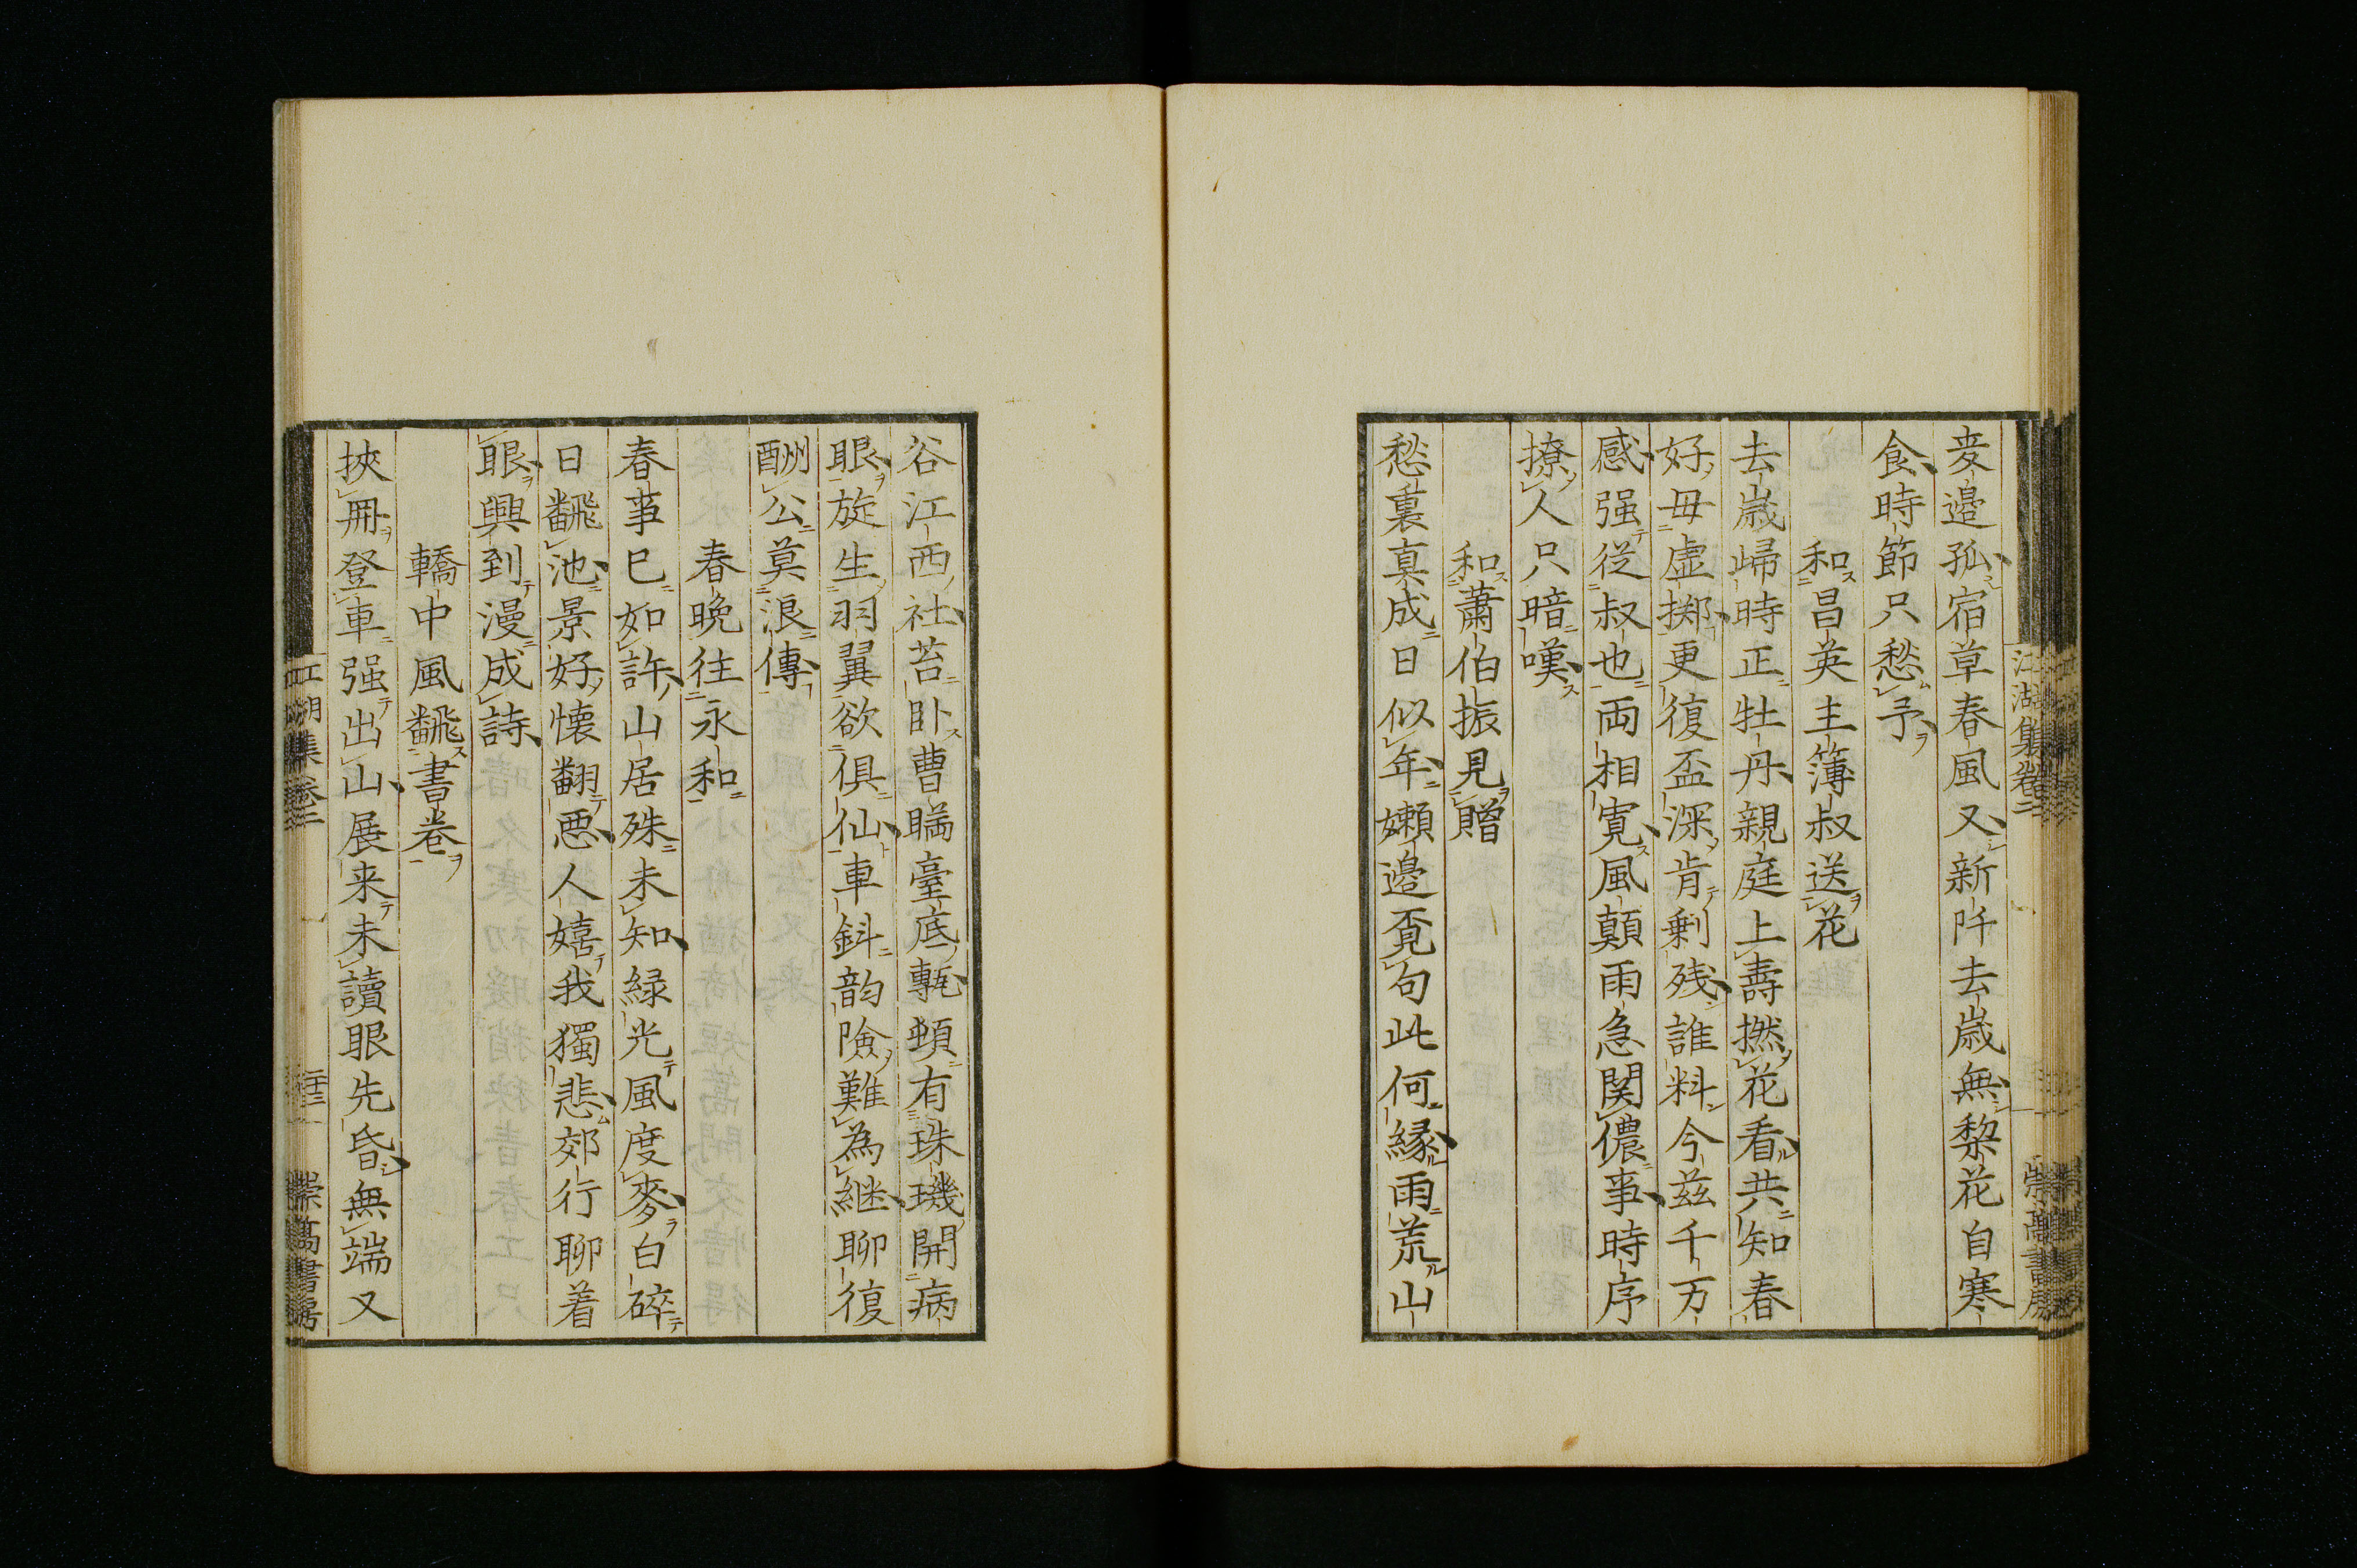 麦邉孤宿草春風又新阡去歳無棃花自寒
食時節只愁予
和昌英主簿叔送花
去歳歸時正牡丹親庭上壽撚花看共知春
好毋虚擲更復盃深肯剰残誰料今兹千万
感强従叔也両相寛風顛雨急関儂事時序
撩人只暗嘆
和蕭伯振見贈
愁裏真成日似年嬾邉覔句此何縁雨荒山
谷江西社苔卧曹瞞臺底甎頼有珠璣開病
眼旋生羽翼欲倶仙車斜韵險難為継聊復
酬公莫浪傳
春晩往永和
春事已如許山居殊未知緑光風度麥白碎
日飜池景好懐翻惡人嬉我獨悲郊行聊着
眼興到漫成詩
轎中風飜書卷
挾冊登車强出山展来未讀眼先昏無端又
江湖集卷二
二十三
崇髙書房